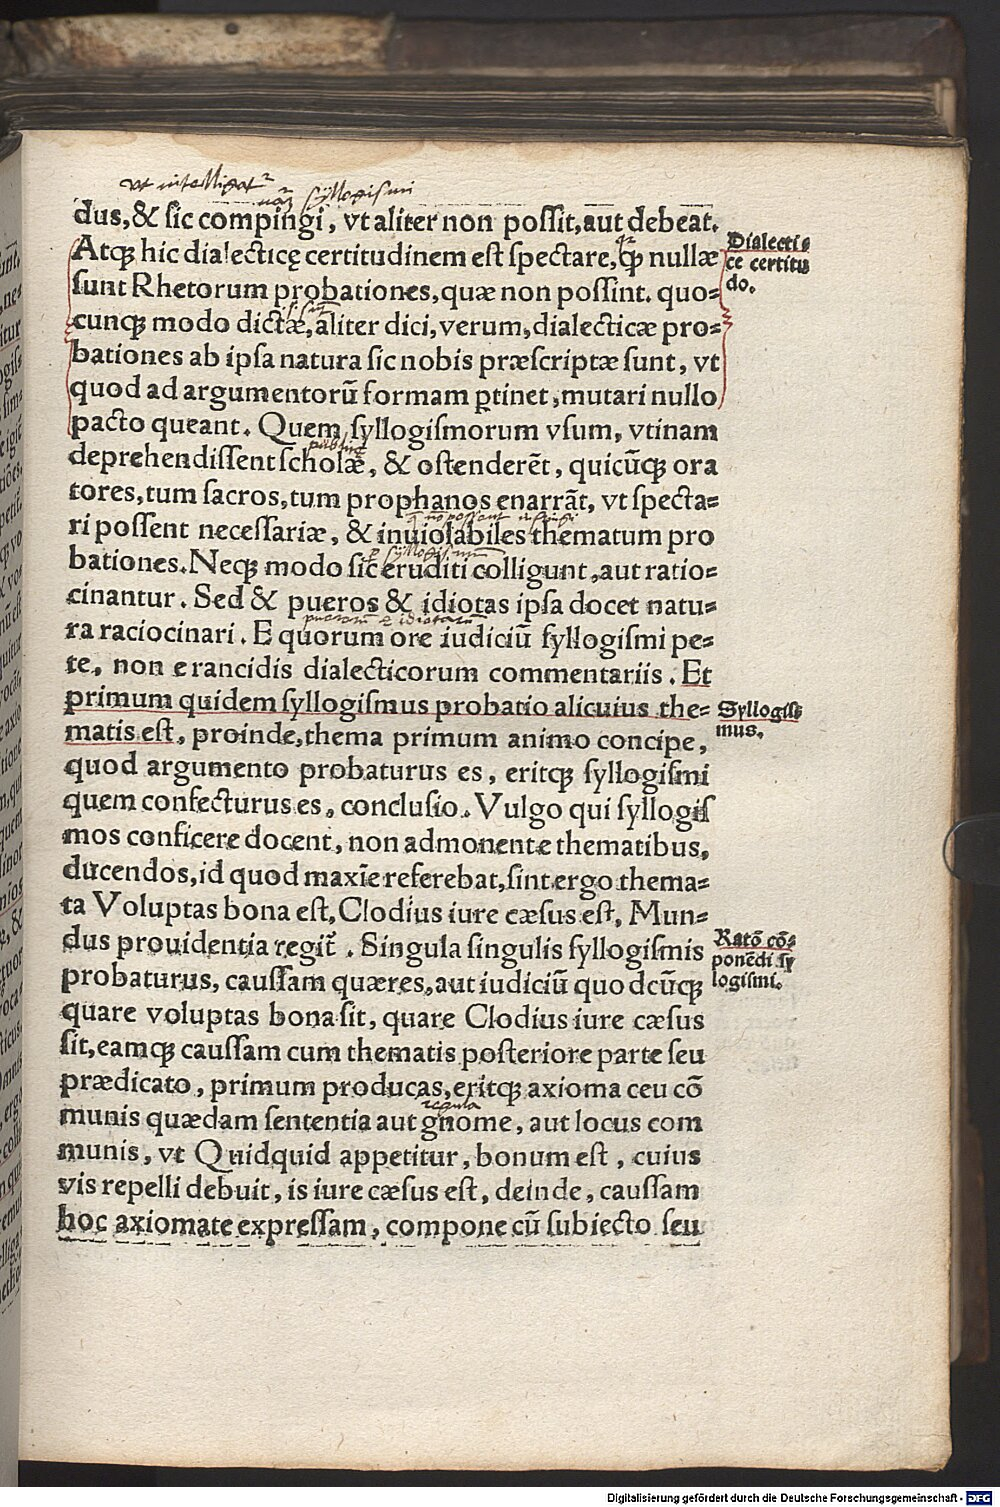 vt intelligat
syllogismi
dus, & sic compingi, vt aliter non possit, aut debeat.
Atqꝫ hic dialecticę certitudinem est spectare, ꝙ nullæ
sunt Rhetorum probationes, quæ non possint. quo-
cunqꝫ modo dictæ, aliter dici, verum, dialecticæ pro-
bationes ab ipsa natura sic nobis præscriptæ sunt, vt
quod ad argumentorū formam ꝑtinet, mutari nullo
pacto queant. Quem syllogismorum vsum, vtinam
deprehendissent scholæ, & ostenderēt, quicūqꝫ ora
tores, tum sacros, tum prophanos enarrāt, vt specta-
ri possent necessariæ, & inuiolabiles thematum pro
bationes. Neqꝫ modo sic eruditi colligunt, aut ratio-
cinantur. Sed & pueros & idiotas ipsa docet natu-
puerorum & idiotarum
ra raciocinari. E quorum ore iudiciū syllogismi pe-
te, non e rancidis dialecticorum commentariis. Et
primum quidem syllogismus probatio alicuius the-
matis est, proinde, thema primum animo concipe,
quod argumento probaturus es, eritqꝫ syllogismi
quem confecturus es, conclusio. Vulgo qui syllogis
mos conficere docent, non admonent e thematibus,
ducendos, id quod maxīe referebat, sint ergo thema-
ta Voluptas bona est, Clodius iure cæsus est, Mun-
dus prouidentia regit̄. Singula singulis syllogismis
probaturus, caussam quæres, aut iudiciū quo dcūqꝫ
quare voluptas bona sit, quare Clodius iure cæsus
sit, eamqꝫ caussam cum thematis posteriore parte seu
prædicato, primum producas, eritqꝫ axioma ceu cō
regula
munis quædam sententia aut gnome, aut locus com
munis, vt Quidquid appetitur, bonum est, cuius
vis repelli debuit, is iure cæsus est, deinde, caussam
hoc axiomate expressam, compone cū subiecto seu
Dialecti-
ce certitu
do.
Syllogis
mus.
Ratō cō-
ponēdi sy
logismi.
Digitalisierung gefördert durch die Deutsche Forschungsgemeinschaft - DFG